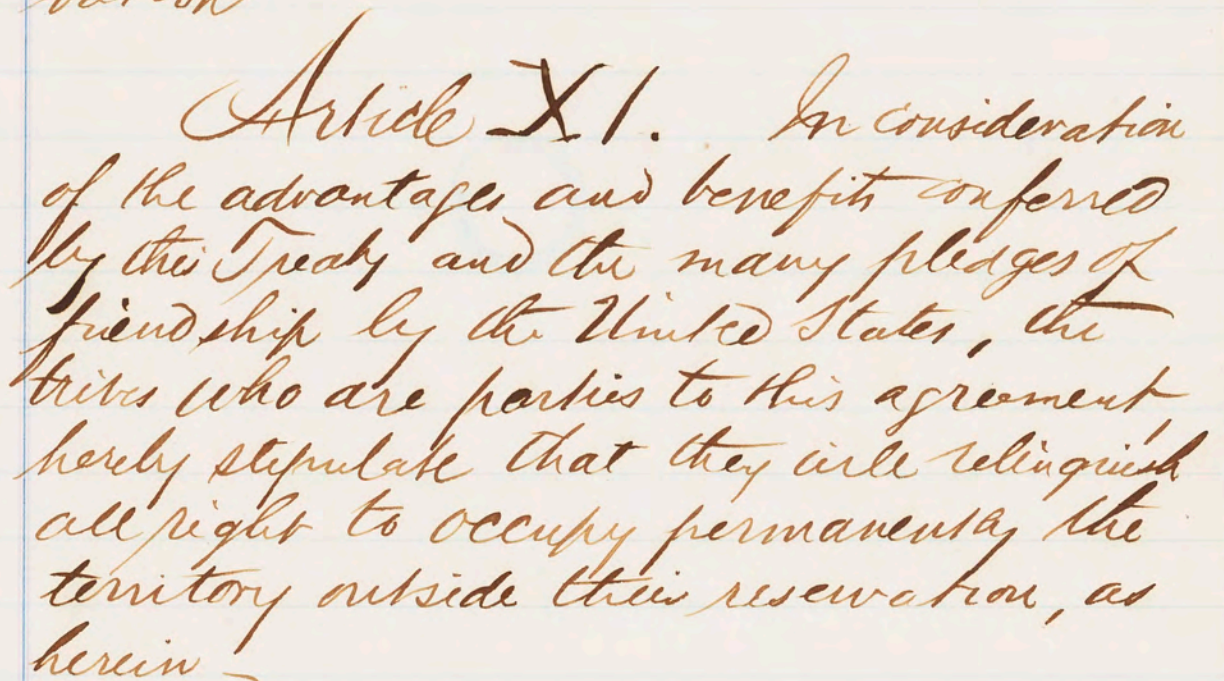 vation
Article XI. In consideration
of the advantages and benefits conferred
by this Treaty and the many pledges of
friendship by the United States, the
tribes who are parties to this agreement,
hereby stipulate that they will relinquish
all right to occupy permanently the
territory outside their reservation, as
herein –